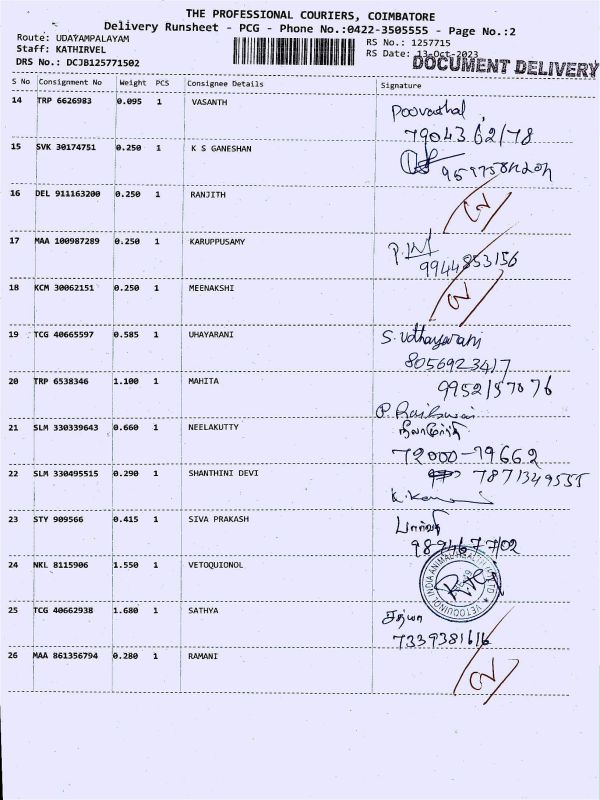 THE PROFESSIONAL COURIERS, COIMBATORE
Delivery Runsheet - PCG - Phone No.:0422-3505555 - Page No.:2
Route: UDAYAMPALAYAM
Staff: KATHIRVEL
DRS No.: DCJB125771502
RS No.: 1257715
RS Date: 13-Oct-2023
DOCUMENT DELIVERY
S No Consignment No Weight PCS Consignee Details Signature
14 TRP 6626983 0.095 1 VASANTH
7904362/78
15 SVK 30174751 0.250 1 K S GANESHAN
16 DEL 911163200 0.250 1 RANJITH
17 MAA 100987289 0.250 1 KARUPPUSAMY
9944853156
18 KCM 30062151 0.250 1 MEENAKSHI
19 TCG 40665597 0.585 1 UHAYARANI
S. Udhayarani
8056923417
20 TRP 6538346 1.100 1 MAHITA
21 SLM 330339643 0.660 1 NEELAKUTTY
72000-79662
22 SLM 330495515 0.290 1 SHANTHINI DEVI
7871349555
23 STY 909566 0.415 1 SIVA PRAKASH
24 NKL 8115906 1.550 1 VETOQUIONOL
25 TCG 40662938 1.680 1 SATHYA
சத்யா
7339381616
26 MAA 861356794 0.280 1 RAMANI